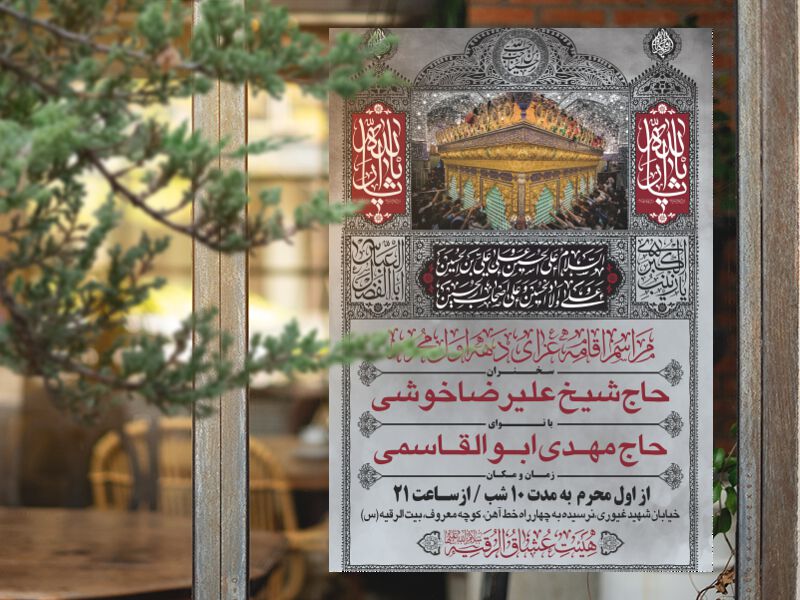 یا ثارالله
یا ثارالله
یا اباالفضل العباس
یا زینب کبری
السلام علی الحسین و علی علی بن الحسین
و علی اولاد الحسین و علی اصحاب الحسین
مراسم اقامه عزای دهه اول محرم
سخنران
حاج شیخ علیرضا خوشی
با نوای
حاج مهدی ابوالقاسمی
زمان و مکان
از اول محرم به مدت ۱۰ شب / از ساعت ۲۱
خیابان شهید غیوری، نرسیده به چهارراه خط آهن، کوچه معروف، بیت الرقیه (س)
هیئت عشاق الرقیه سلام الله علیها